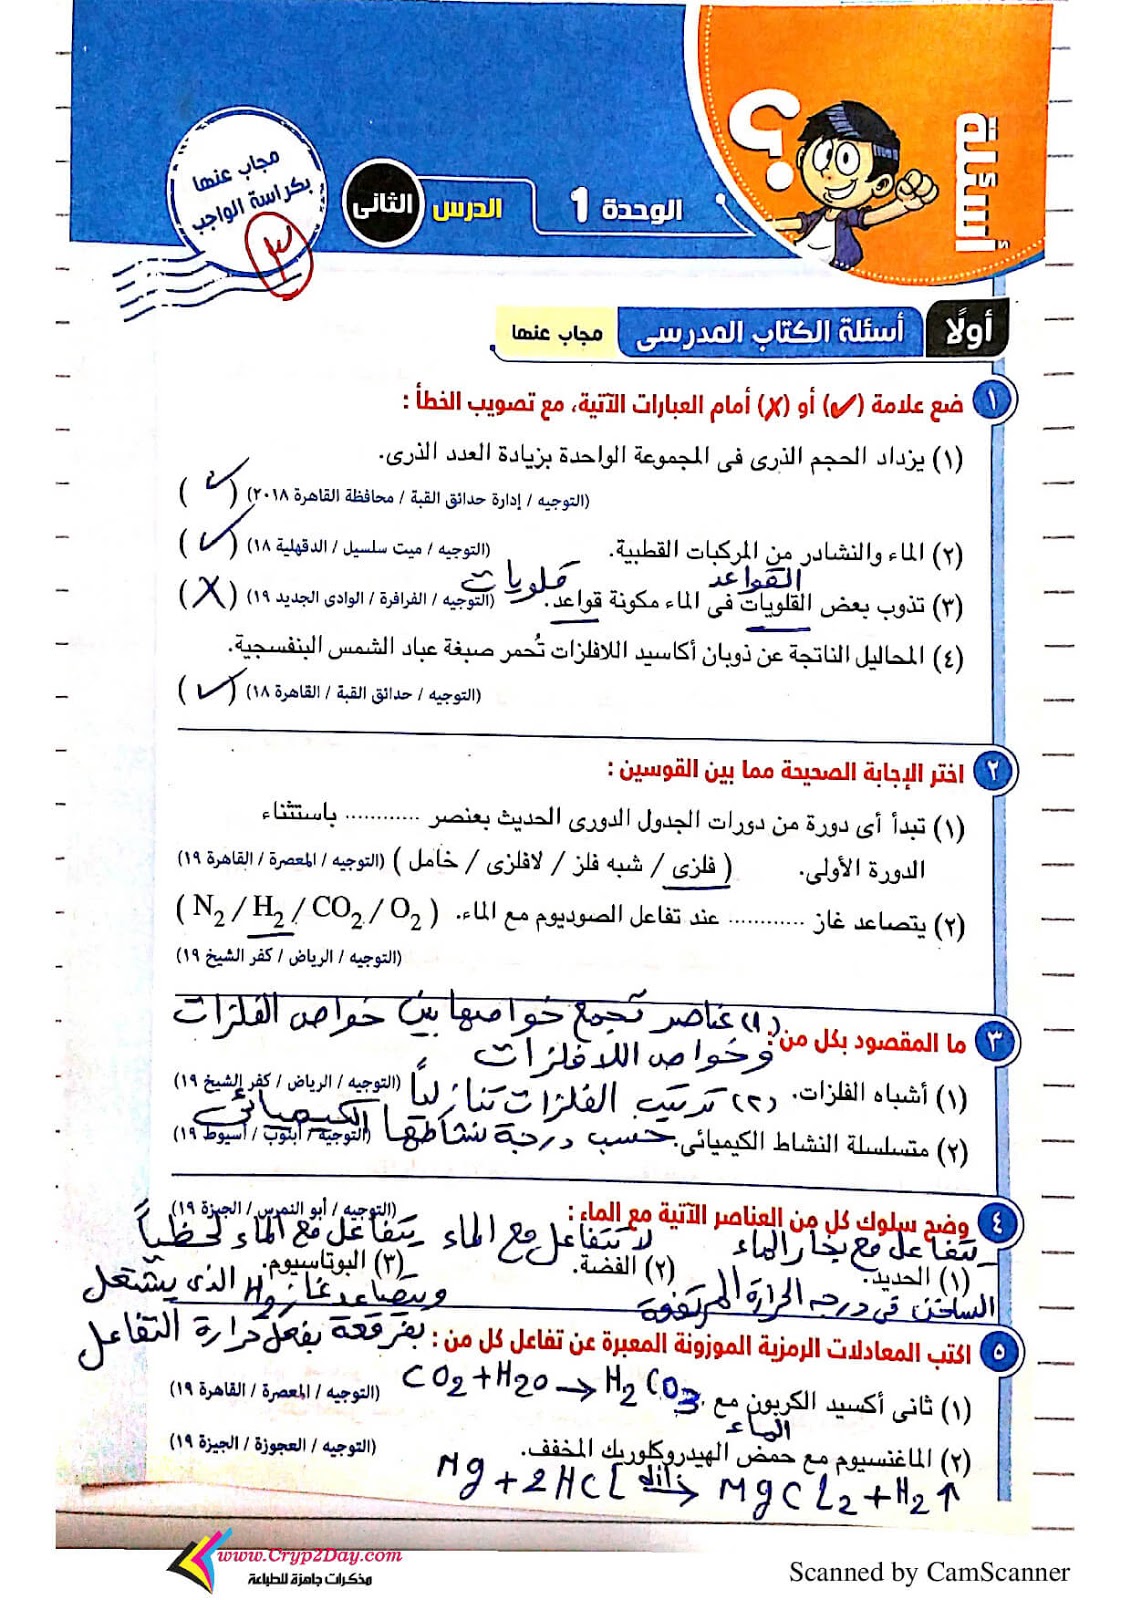 أسئلة
؟
الوحدة 1
الدرس الثانى
مجاب عنها
بكراسة الواجب
٣
أولًا أسئلة الكتاب المدرسى مجاب عنها
١ ضع علامة (✓) أو (✗) أمام العبارات الآتية، مع تصويب الخطأ :
(١) يزداد الحجم الذرى فى المجموعة الواحدة بزيادة العدد الذرى.
(التوجيه / إدارة حدائق القبة / محافظة القاهرة ٢٠١٨) (✓)
(٢) الماء والنشادر من المركبات القطبية. (التوجيه / ميت سلسيل / الدقهلية ١٨) (✓)
القواعد قلويات
(٣) تذوب بعض القلويات فى الماء مكونة قواعد. (التوجيه / الفرافرة / الوادى الجديد ١٩) (X)
(٤) المحاليل الناتجة عن ذوبان أكاسيد اللافلزات تُحمر صبغة عباد الشمس البنفسجية.
(التوجيه / حدائق القبة / القاهرة ١٨) (✓)
٢ اختر الإجابة الصحيحة مما بين القوسين :
(١) تبدأ أى دورة من دورات الجدول الدورى الحديث بعنصر ............ باستثناء
الدورة الأولى. (فلزى / شبه فلز / لافلزى / خامل) (التوجيه / المعصرة / القاهرة ١٩)
(٢) يتصاعد غاز ............ عند تفاعل الصوديوم مع الماء. (N2 / H2 / CO2 / O2)
(التوجيه / الرياض / كفر الشيخ ١٩)
(١) عناصر تجمع خواصها بين خواص الفلزات
٣ ما المقصود بكل من :
وخواص اللافلزات
(١) أشباه الفلزات. (التوجيه / الرياض / كفر الشيخ ١٩)
(٢) ترتيب الفلزات تنازلياً
(٢) متسلسلة النشاط الكيميائى. (التوجيه / أبنوب / أسيوط ١٩)
حسب درجة نشاطها الكيميائى
٤ وضح سلوك كل من العناصر الآتية مع الماء : (التوجيه / أبو النمرس / الجيزة ١٩)
يتفاعل مع بخار الماء لا تتفاعل مع الماء يتفاعل مع الماء لحظياً
(١) الحديد. (٢) الفضة. (٣) البوتاسيوم.
الساخن فى درجه الحرارة المرتفعة ويتصاعد غاز H2 الذى يشتعل
بفرقعة بفعل حرارة التفاعل
٥ اكتب المعادلات الرمزية الموزونة المعبرة عن تفاعل كل من :
CO2 + H2O → H2CO3
(١) ثانى أكسيد الكربون مع الماء (التوجيه / المعصرة / القاهرة ١٩)
(٢) الماغنسيوم مع حمض الهيدروكلوريك المخفف. (التوجيه / العجوزة / الجيزة ١٩)
Mg + 2HCl dil→ MgCl2 + H2↑
www.Cryp2Day.com
مذكرات جاهزة للطباعة
Scanned by CamScanner